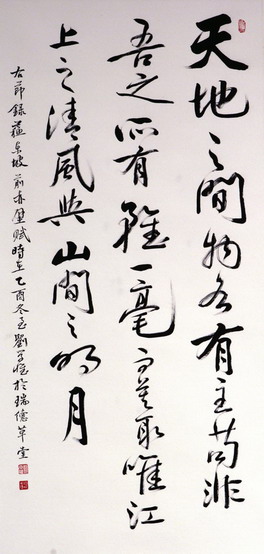 天地之間物各有主苟非
吾之所有雖一毫而莫取唯江
上之清風與山間之明月
右節錄蘇東坡前赤壁賦時在乙酉冬至劉於瑞億草堂